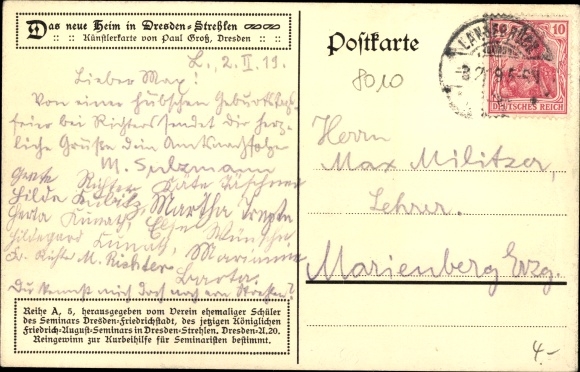 Das neue Heim in Dresden-Strehlen
:: :: Künstlerkarte von Paul Groß, Dresden :: ::
L., 2. II. 19.
Lieber Max!
Von einer hübschen Geburtstags-
feier bei Richters sendet dir herz-
liche Grüße dein Amtsnachfolger
M. Sulzmann
Grete Richter Käte
Hilda Kubitz, Martha
Herta Kunath, Else Wünsche
Hildegard Kunath, Marianne
M. Richter
Du kennst mich doch noch von Strehlen?
Reihe A, 5, herausgegeben vom Verein ehemaliger Schüler
des Seminars Dresden-Friedrichstadt, des jetzigen Königlichen
Friedrich-August-Seminars in Dresden-Strehlen. Dresden-A. 20.
Reingewinn zur Kurbeihilfe für Seminaristen bestimmt.
Postkarte
8010
10
DEUTSCHES REICH
Herrn
Max Militzer,
Lehrer.
Marienberg Erzg.
4.-